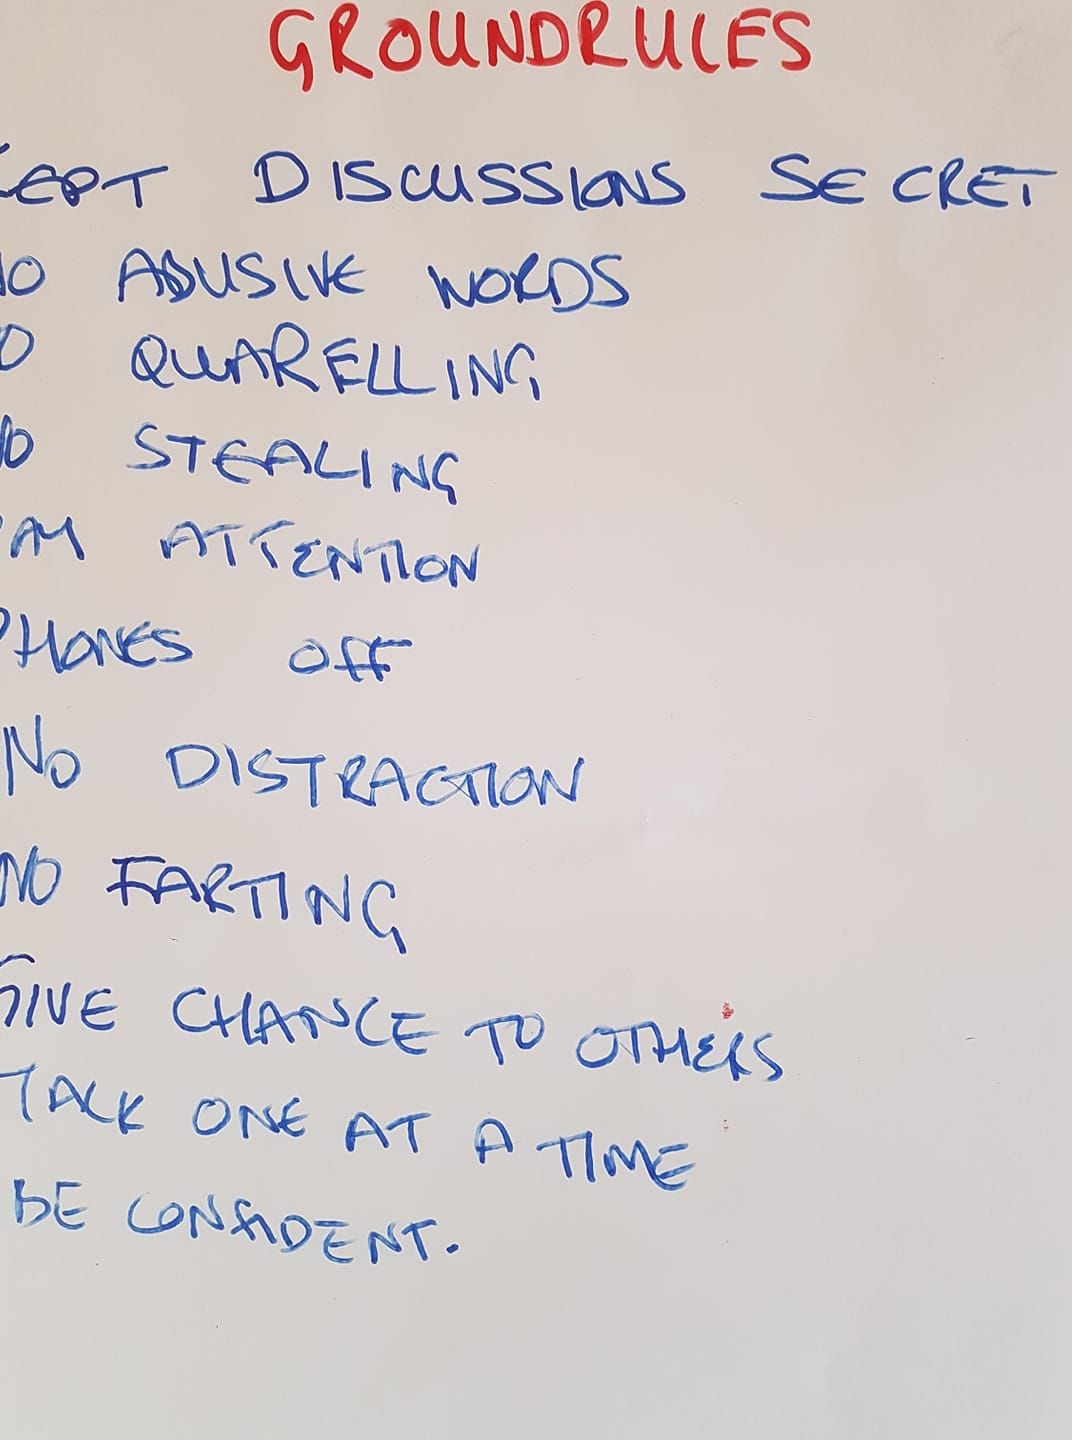 GROUNDRULES
KEPT DISCUSSIONS SECRET
NO ABUSIVE WORDS
NO QUARELLING
NO STEALING
PAY ATTENTION
PHONES OFF
NO DISTRACTION
NO FARTING
GIVE CHANCE TO OTHERS
TALK ONE AT A TIME
BE CONFIDENT.